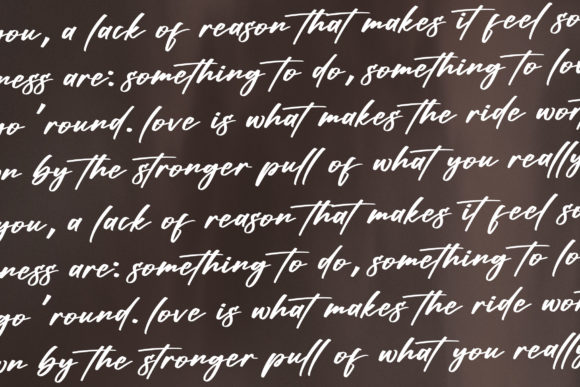 you, a lack of reason that makes it feel so
ness are: something to do, something to lo
go 'round. love is what makes the ride wor
n by the stronger pull of what you really
you, a lack of reason that makes it feel so
ness are: something to do, something to lo
go 'round. love is what makes the ride wor
n by the stronger pull of what you really